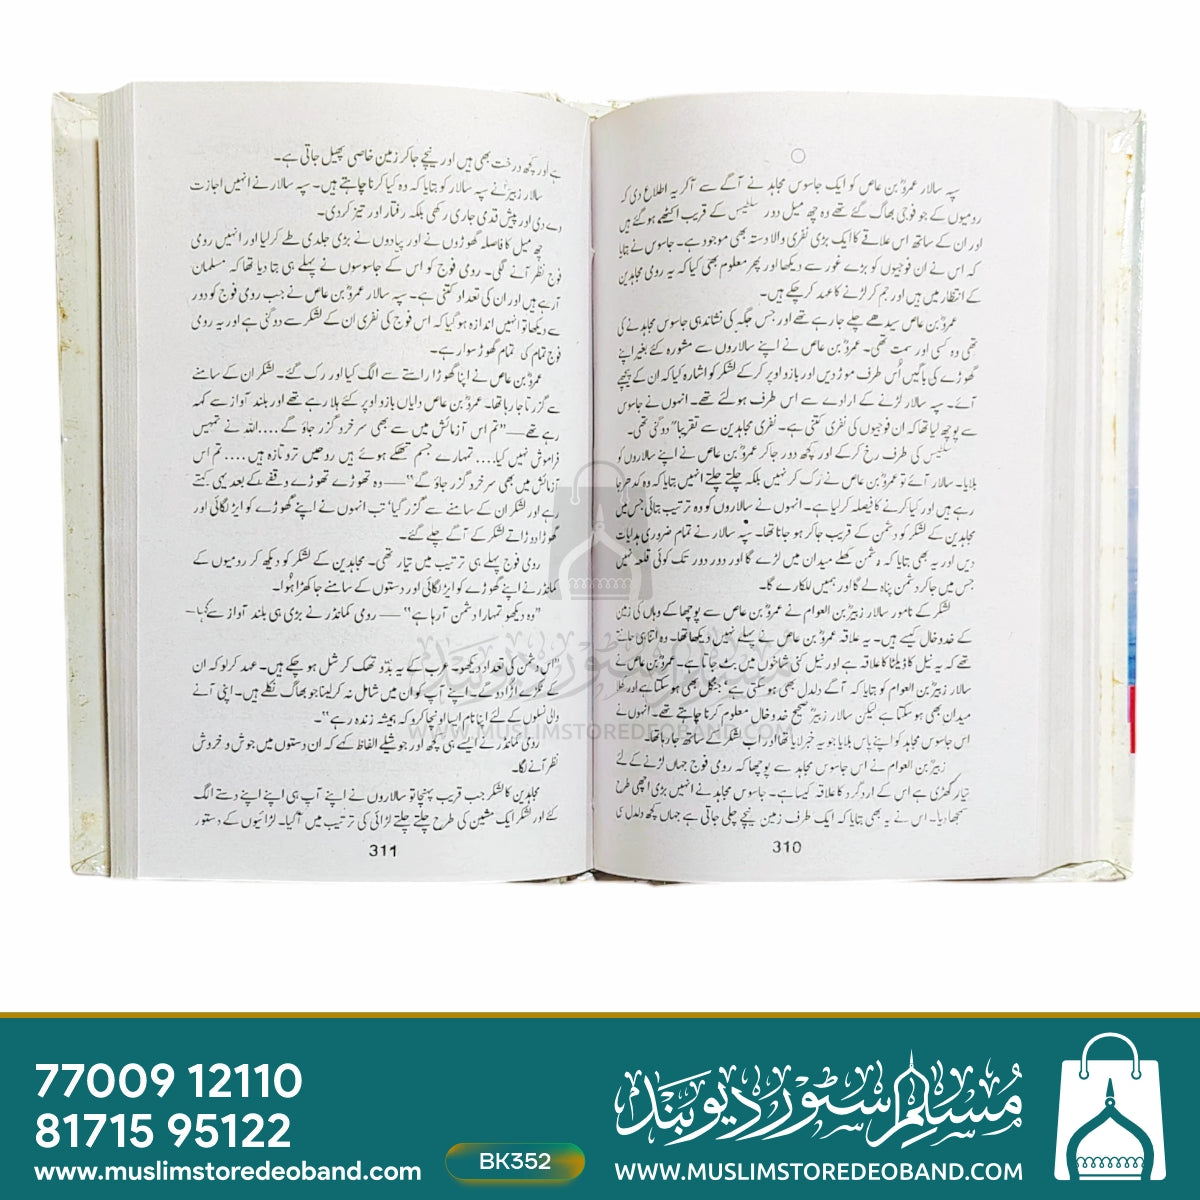 سپہ سالار عمروؓ بن عاص کو ایک جاسوس مجاہد نے آگے سے آکر یہ اطلاع دی کہ
رومیوں کے جو فوجی بھاگ گئے تھے وہ چھ میل دور سلطیس کے قریب اکٹھے ہو گئے ہیں
اور ان کے ساتھ اس علاقے کا ایک بڑی نفری والا دستہ بھی موجود ہے۔ جاسوس نے بتایا
کہ اس نے ان فوجیوں کو بڑے غور سے دیکھا اور پھر معلوم بھی کیا کہ یہ رومی مجاہدین
کے انتظار میں ہیں اور جم کر لڑنے کا عہد کر چکے ہیں۔
عمروؓ بن عاص سیدھے چلے جا رہے تھے اور جس جگہ کی نشاندہی جاسوس مجاہد نے کی
تھی وہ کسی اور سمت تھی۔ عمروؓ بن عاص نے اپنے سالاروں سے مشورہ کئے بغیر اپنے
گھوڑے کی باگیں اُس طرف موڑ دیں اور بازو اوپر کر کے لشکر کو اشارہ کیا کہ ان کے پیچھے
آئے۔ سپہ سالار لڑنے کے ارادے سے اس طرف ہو لئے تھے۔ انہوں نے جاسوس
سے پوچھ لیا تھا کہ ان فوجیوں کی نفری کتنی ہے۔ نفری مجاہدین سے تقریباً" دوگنی تھی۔
سلطیس کی طرف رخ کر کے اور کچھ دور جا کر عمروؓ بن عاص نے اپنے سالاروں کو
بلایا۔ سالار آئے تو عمروؓ بن عاص نے رُک کر نہیں بلکہ چلتے چلتے انہیں بتایا کہ وہ کدھر جا
رہے ہیں اور کیا کرنے کا فیصلہ کر لیا ہے۔ انہوں نے سالاروں کو وہ ترتیب بتائی جس میں
مجاہدین کے لشکر کو دشمن کے قریب جا کر ہو جانا تھا۔ سپہ سالار نے تمام ضروری ہدایات
دیں اور یہ بھی بتایا کہ دشمن کھلے میدان میں لڑے گا اور دور دور تک کوئی قلعہ نہیں
جس میں جا کر دشمن پناہ لے گا اور ہمیں للکارے گا۔
لشکر کے نامور سالار زبیرؓ بن العوام نے عمروؓ بن عاص سے پوچھا کے وہاں کی زمین
کے خدوخال کیسے ہیں۔ یہ علاقہ عمروؓ بن عاص نے پہلے نہیں دیکھا تھا۔ وہ اتنا ہی جانتے
تھے کہ یہ نیل کا ڈیلٹا کا علاقہ ہے اور نیل کئی شاخوں میں بٹ جاتا ہے۔ عمروؓ بن عاص نے
سالار زبیرؓ بن العوام کو بتایا کہ آگے دلدل بھی ہو سکتی ہے، جنگل بھی ہو سکتا ہے اور کھلا
میدان بھی ہو سکتا ہے لیکن سالار زبیرؓ صحیح خدوخال معلوم کرنا چاہتے تھے۔ انہوں نے
اس جاسوس مجاہد کو اپنے پاس بلایا جو یہ خبر لایا تھا اور اب لشکر کے ساتھ جا رہا تھا۔
زبیرؓ بن العوام نے اس جاسوس مجاہد سے پوچھا کہ رومی فوج جہاں لڑنے کے لئے
تیار کھڑی ہے اس کے اردگرد کا علاقہ کیسا ہے۔ جاسوس مجاہد نے انہیں بڑی اچھی طرح
سمجھا دیا۔ اس نے یہ بھی بتایا کہ ایک طرف زمین نیچے چلی جاتی ہے جہاں کچھ دلدل بھی
310
ہے اور کچھ درخت بھی ہیں اور نیچے جا کر زمین خاصی پھیل جاتی ہے۔
سالار زبیرؓ نے سپہ سالار کو بتایا کہ وہ کیا کرنا چاہتے ہیں۔ سپہ سالار نے انہیں اجازت
دے دی اور پیش قدمی جاری رکھی بلکہ رفتار اور تیز کر دی۔
چھ میل کا فاصلہ گھوڑوں نے اور پیادوں نے بڑی جلدی طے کر لیا اور انہیں رومی
فوج نظر آنے لگی۔ رومی فوج کو اس کے جاسوسوں نے پہلے ہی بتا دیا تھا کہ مسلمان
آرہے ہیں اور ان کی تعداد کتنی ہے۔ سپہ سالار عمروؓ بن عاص نے جب رومی فوج کو دور
سے دیکھا تو انہیں اندازہ ہو گیا کہ اس فوج کی نفری ان کے لشکر سے دوگنی ہے اور یہ رومی
فوج تمام کی تمام گھوڑ سوار ہے۔
عمروؓ بن عاص نے اپنا گھوڑا راستے سے الگ کیا اور رک گئے۔ لشکر ان کے سامنے
سے گزرتا جا رہا تھا۔ عمروؓ بن عاص دایاں بازو اوپر کئے ہلا رہے تھے اور بلند آواز سے کہہ
رہے تھے—"تم اس آزمائش میں سے بھی سرخرو گزر جاؤ گے.... اللہ نے تمہیں
فراموش نہیں کیا.... تمہارے جسم تھکے ہوئے ہیں روحیں تروتازہ ہیں.... تم اس
آزمائش میں بھی سرخرو گزر جاؤ گے"—وہ تھوڑے تھوڑے وقفے کے بعد یہی کہتے
رہے اور لشکر ان کے سامنے سے گزر گیا، تب انہوں نے اپنے گھوڑے کو ایڑ لگائی اور
گھوڑا دوڑاتے لشکر کے آگے چلے گئے۔
رومی فوج پہلے ہی ترتیب میں تیار تھی۔ مجاہدین کے لشکر کو دیکھ کر رومیوں کے
کمانڈر نے اپنے گھوڑے کو ایڑ لگائی اور دستوں کے سامنے جا کھڑا ہُوا۔
"وہ دیکھو تمہارا دشمن آ رہا ہے"— رومی کمانڈر نے بڑی ہی بلند آواز سے کہا—
"اس دشمن کی تعداد دیکھو۔ عرب کے یہ بدّو تھک کر شل ہو چکے ہیں۔ عہد کر لو کہ ان
کے ٹکڑے اڑا دو گے۔ اپنے آپ کو ان میں شامل نہ کر لینا جو بھاگ نکلے ہیں۔ اپنی آنے
والی نسلوں کے لئے اپنا نام ایسا اونچا کرو کہ ہمیشہ زندہ رہے"۔
رومی کمانڈر نے ایسے ہی کچھ اور جوشیلے الفاظ کہے کہ ان دستوں میں جوش و خروش
نظر آنے لگا۔
مجاہدین کا لشکر جب قریب پہنچا تو سالاروں نے اپنے آپ ہی اپنے اپنے دستے الگ
کئے اور لشکر ایک مشین کی طرح چلتے چلتے لڑائی کی ترتیب میں آگیا۔ لڑائیوں کے دستور
311
مسلم سٹور دیوبند
WWW.MUSLIMSTOREDEOBAND.COM
77009 12110
81715 95122
www.muslimstoredeoband.com
BK352
مسلم سٹور دیوبند
WWW.MUSLIMSTOREDEOBAND.COM